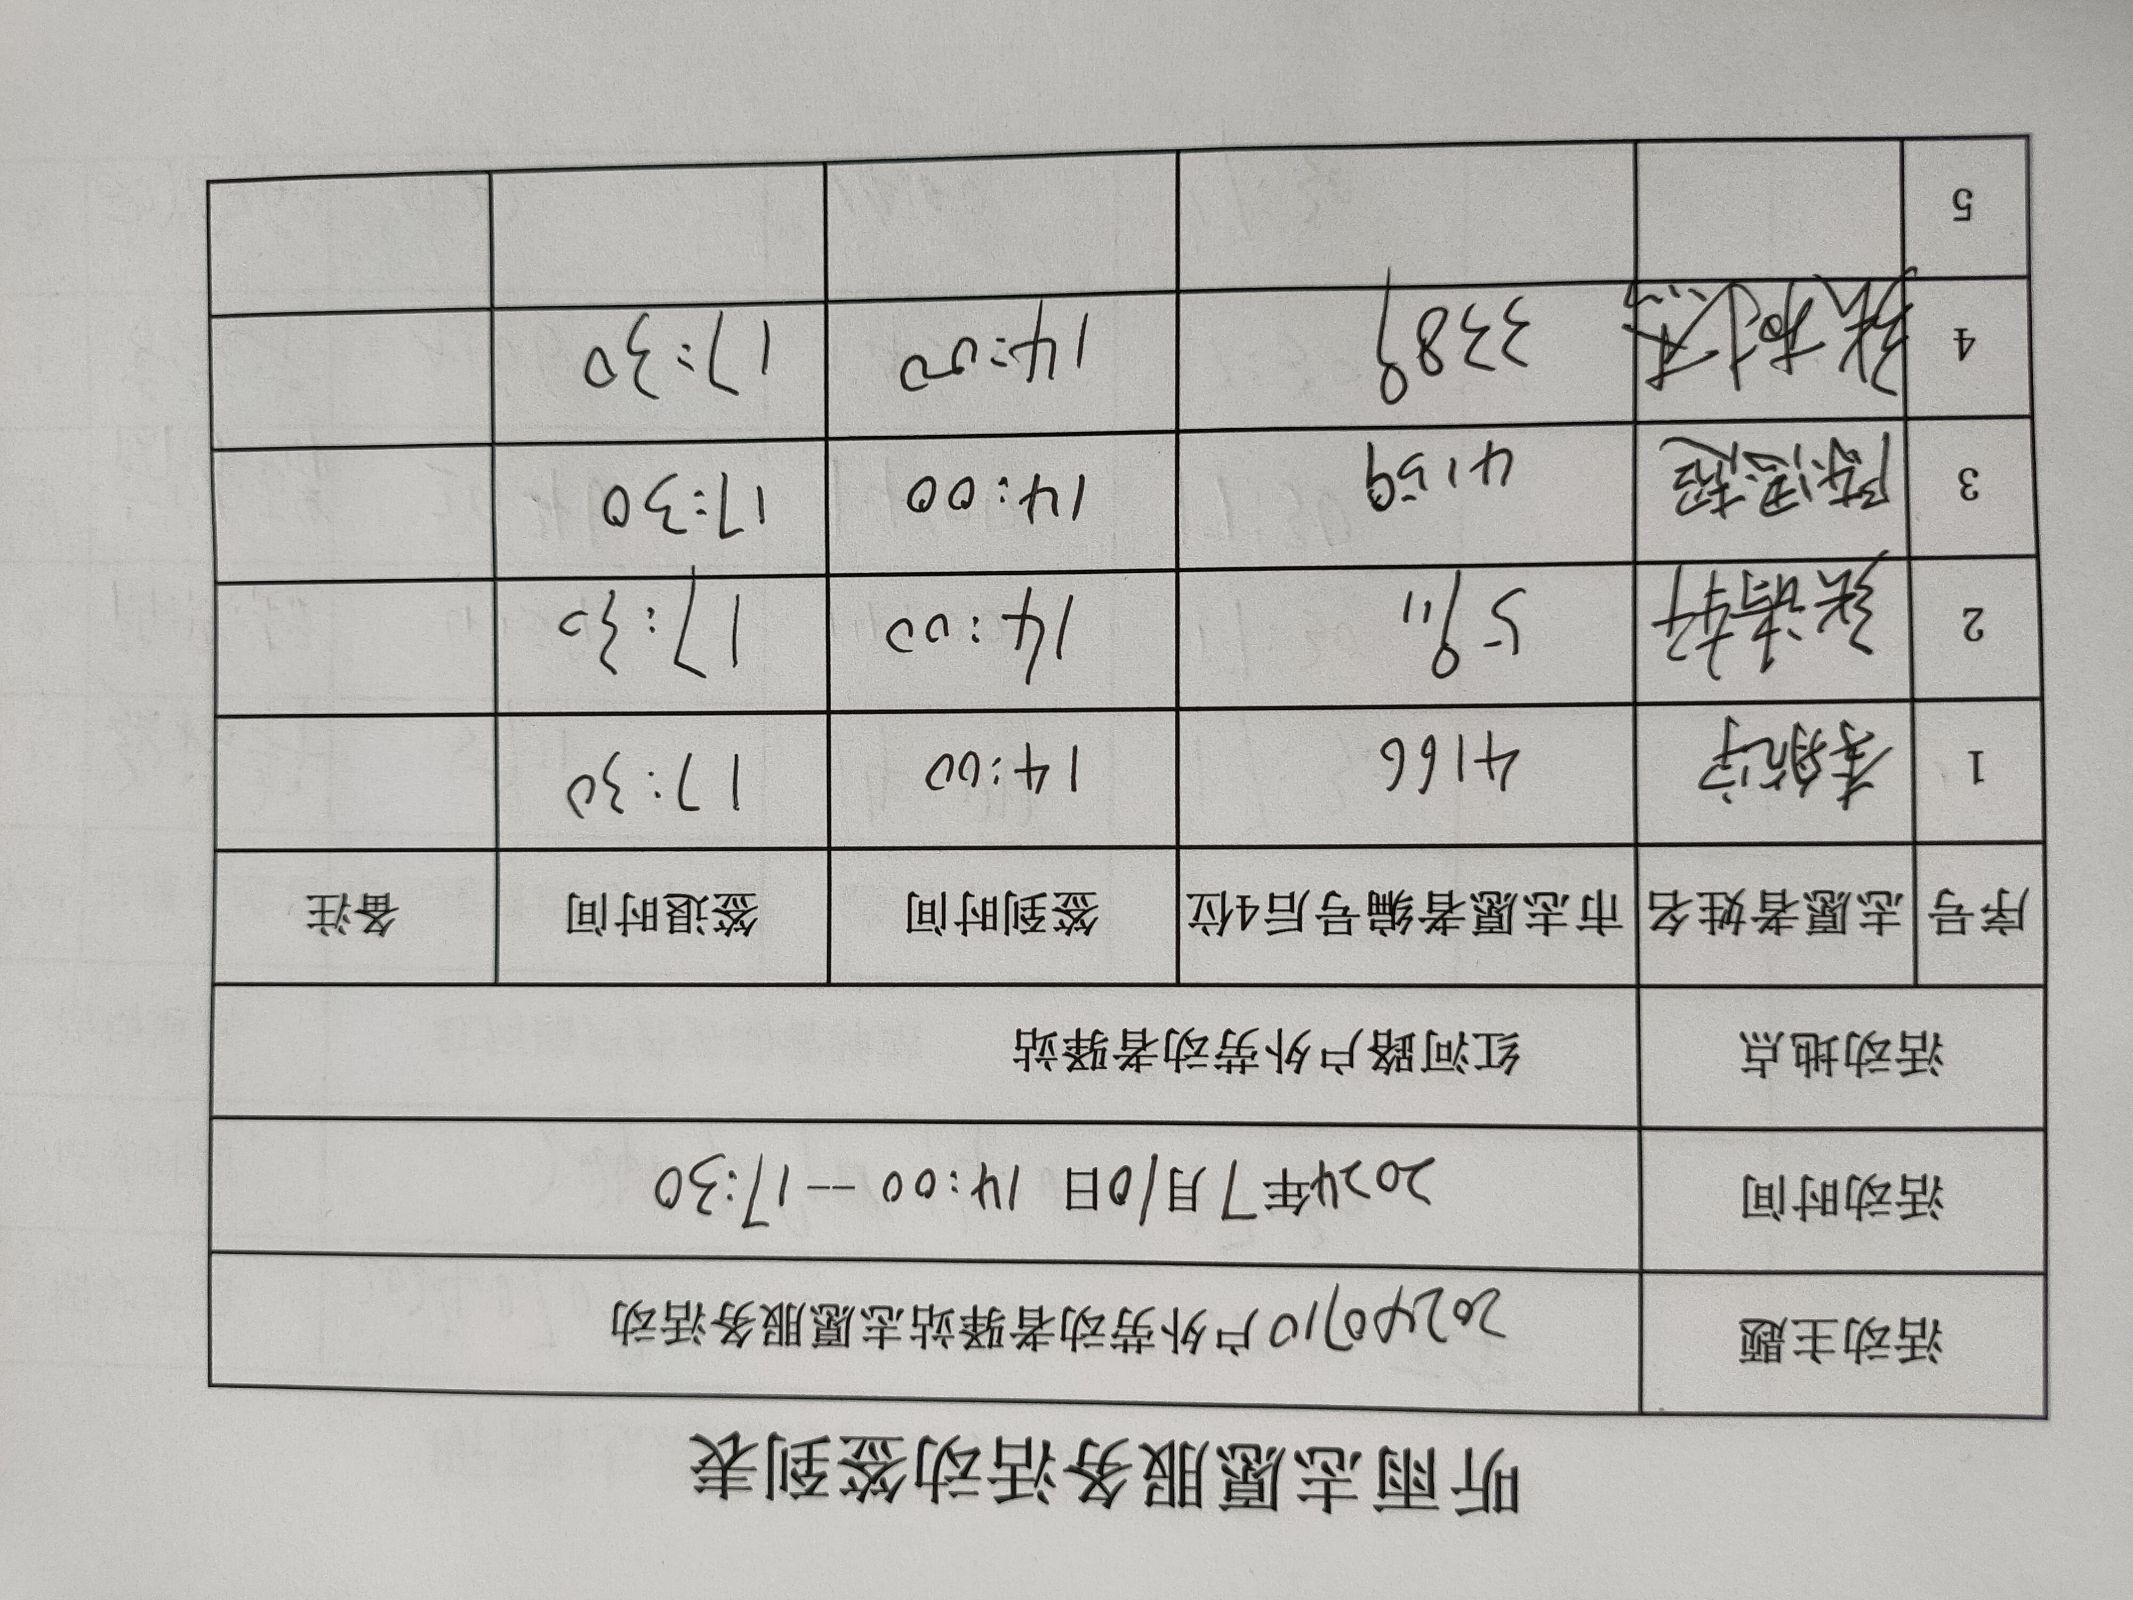 听雨志愿服务活动签到表
活动主题 20240710户外劳动者驿站志愿服务活动
活动时间 2024年7月10日 14:00--17:30
活动地点 红河路户外劳动者驿站
序号 志愿者姓名 市志愿者编号后4位 签到时间 签退时间 备注
1 李航宇 4166 14:00 17:30
2 5911 14:00 17:30
3 4159 14:00 17:30
4 3389 14:00 17:30
5